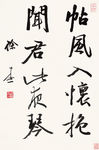 帖風入懷抱
聞君此夜琴